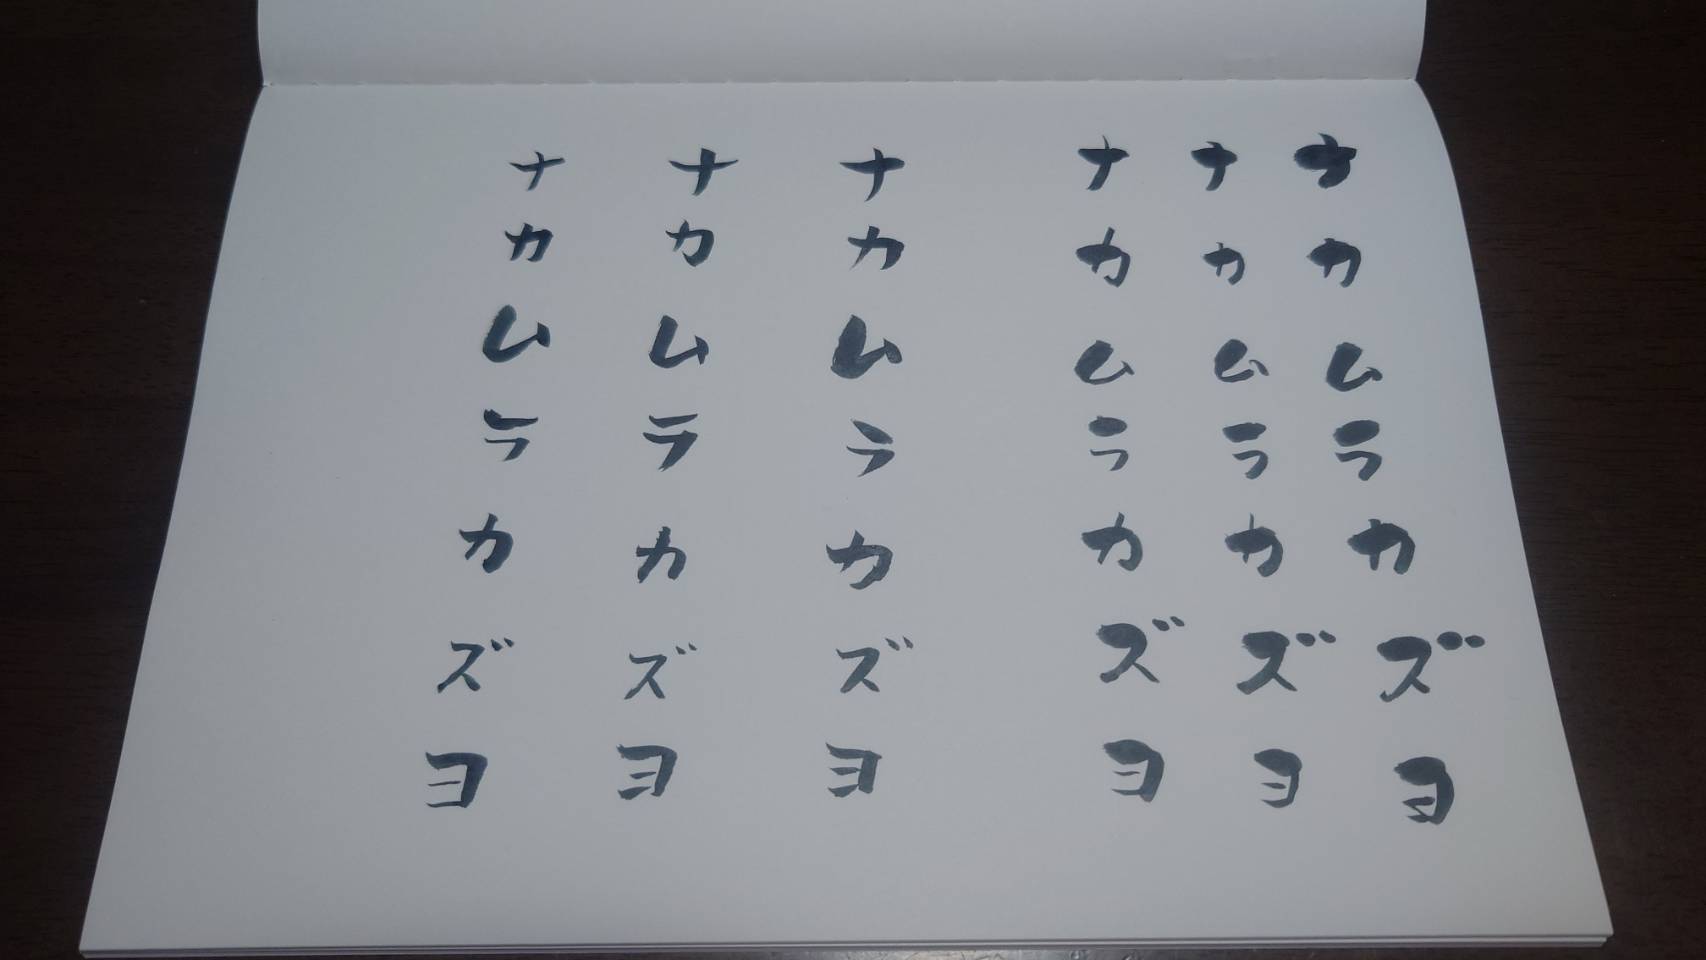 ナカムラカズヨ
ナカムラカズヨ
ナカムラカズヨ
ナカムラカズヨ
ナカムラカズヨ
ナカムラカズヨ